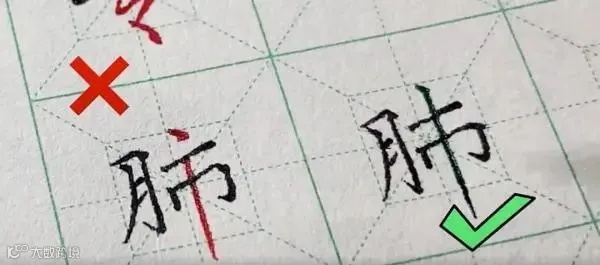 肺 肺
大数跨境